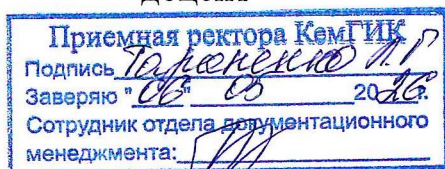 Приемная ректора КемГИК
Подпись Тараненко Л.Г
Заверяю "06" 03 2026г.
Сотрудник отдела документационного
менеджмента: